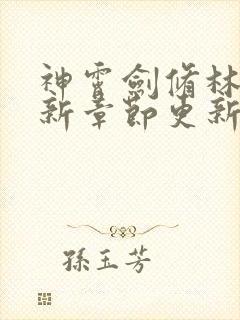 神霄劍脩林
新章節更新
孫玉芳